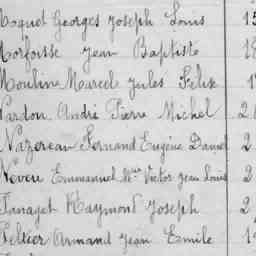 Moquet Georges Joseph Louis 15
Morfoisse Jean Baptiste 18
Mouline Marcel Jules Félix 1
Pardon André Pierre Michel 2
Nazereau Fernand Eugène Daniel 2
Neveu Emmanuel Mie Victor Jean Louis 2
Panaget Raymond Joseph 2
Peltier Armand Jean Emile 19